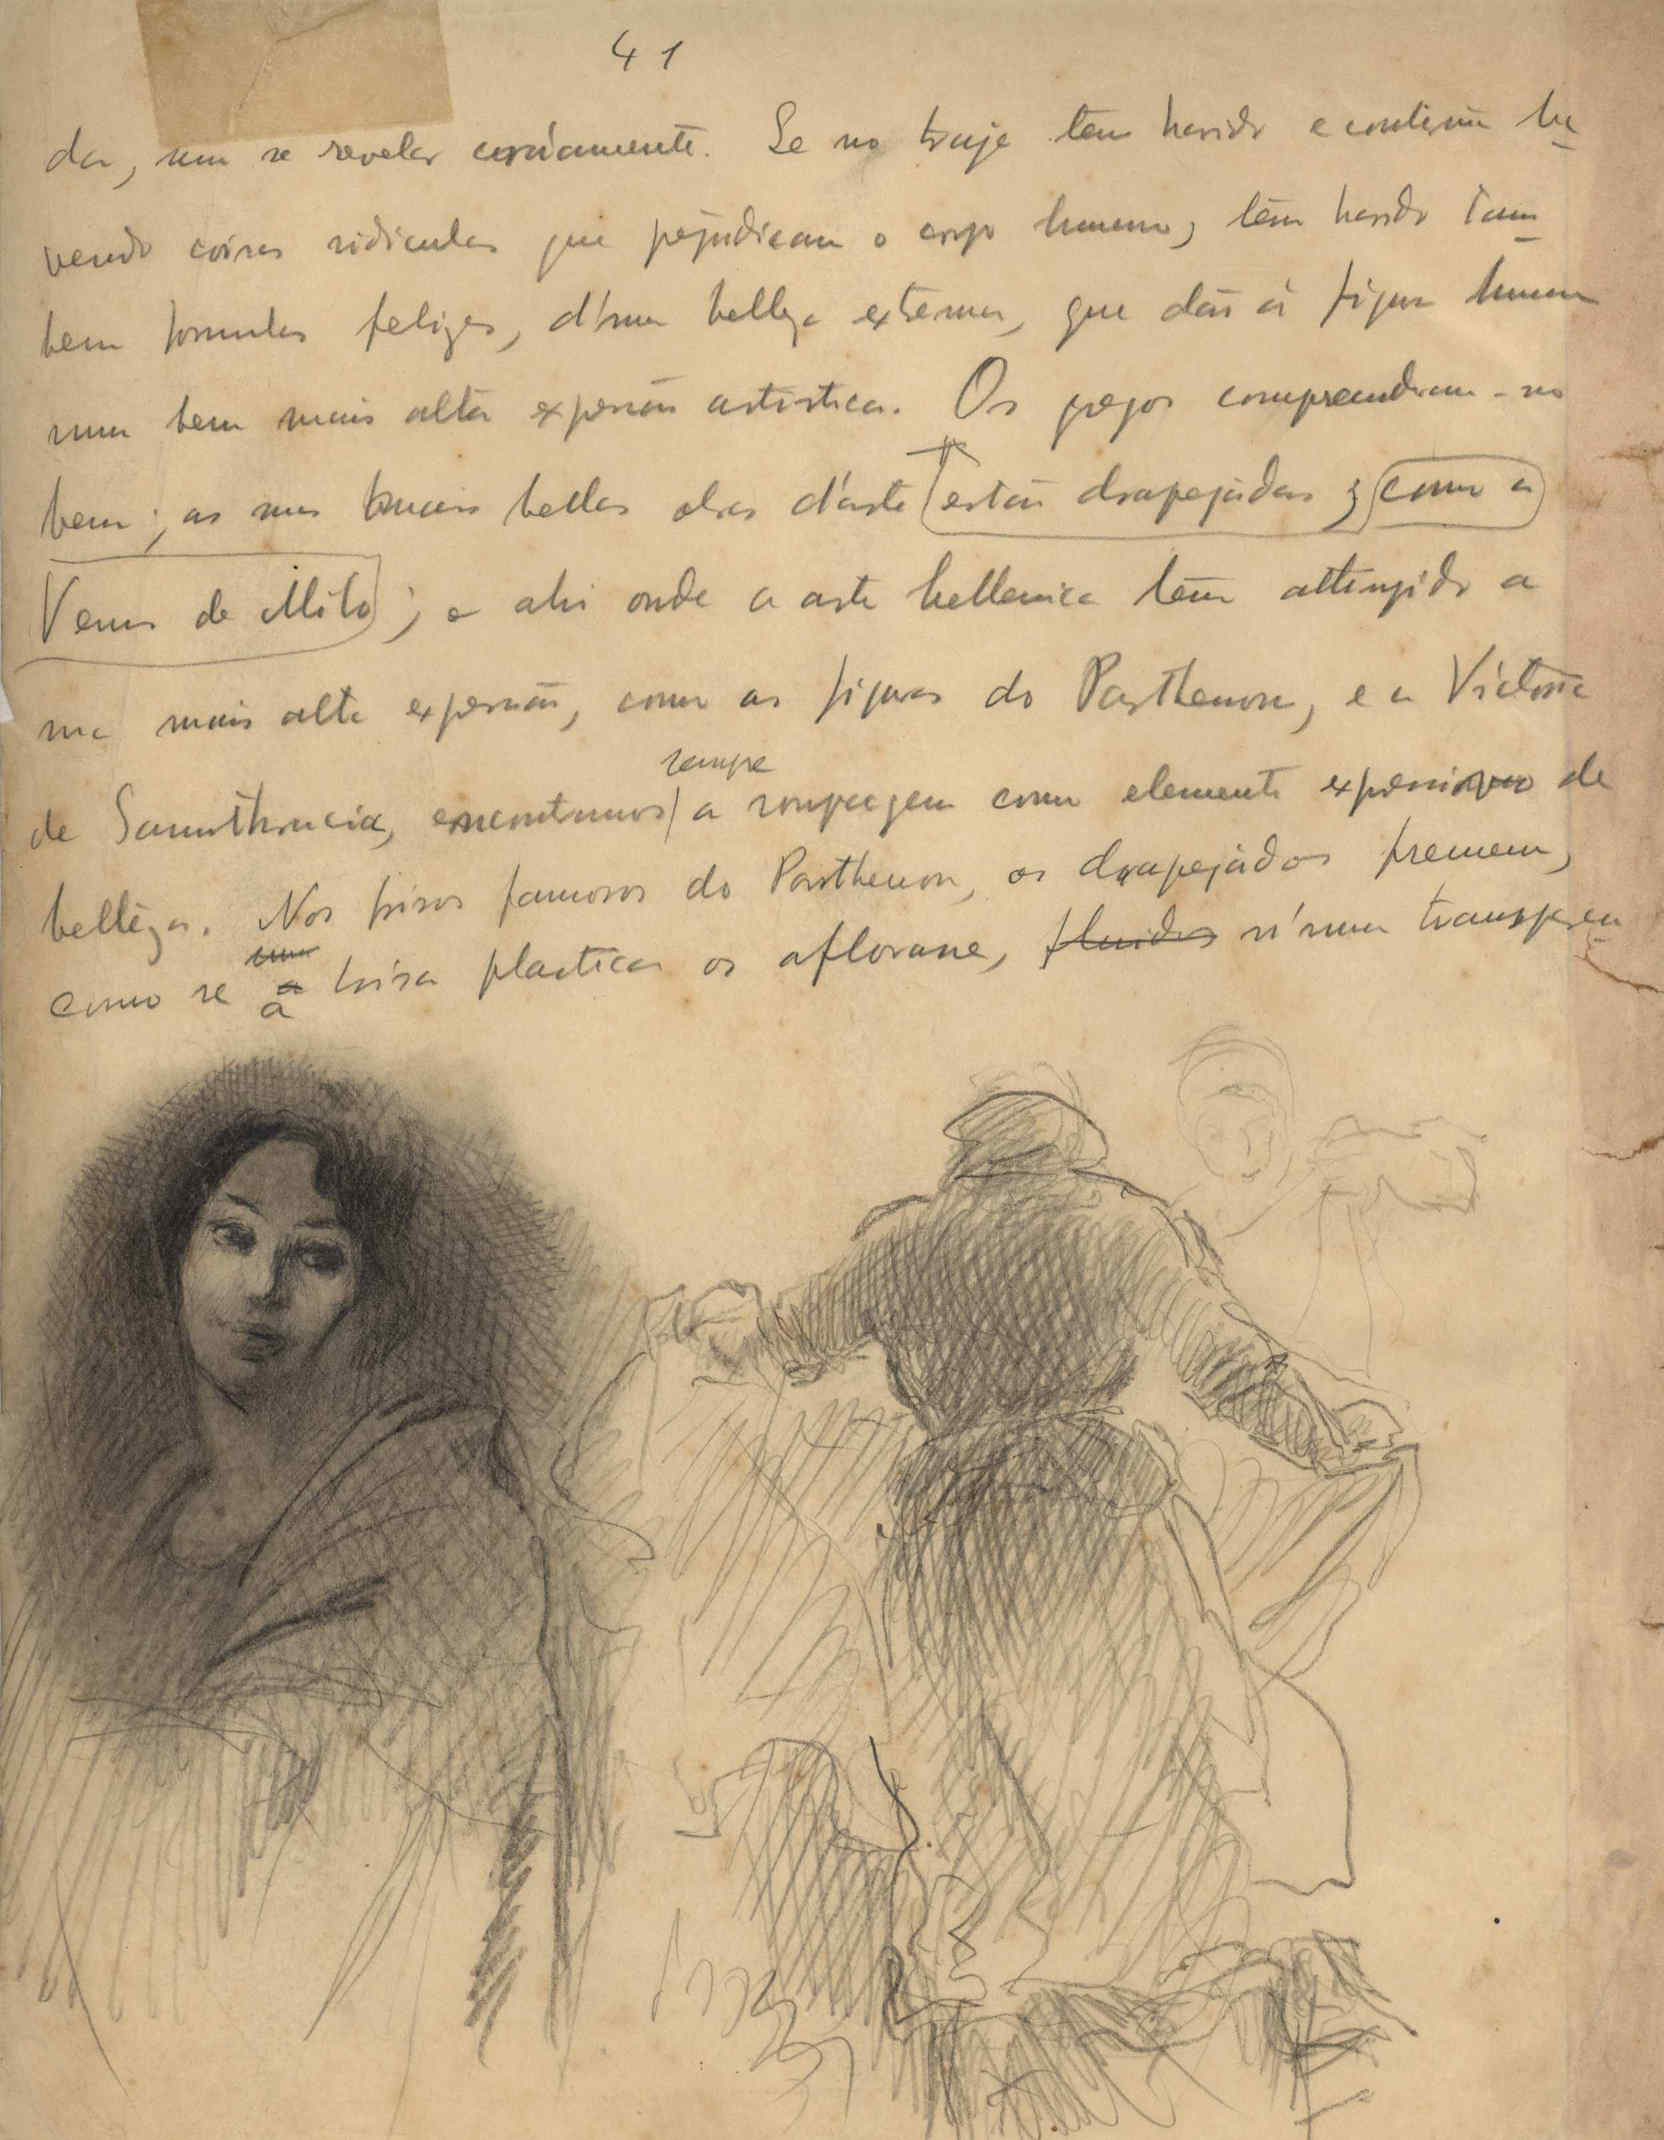 41
dar, sem se revelar cruamente. Se no traje tem havido e continua ha-
vendo coisas ridiculas que prejudicam o corpo humano, têm havido tam-
bem formulas felizes, d'uma belleza extrema, que dão á figura huma
uma bem mais alta expressão artistica. Os gregos comprehendiam-no
bem; as suas mais bellas obras d'arte estão drapejádas; como a
Venus de Milo; e ahi onde a arte hellenica tem attingido a
sua mais alta expressão, como as figuras do Parthenon, e a Victoria
sempre
de Samothracia, encontramos a roupagem como elemento expressivo de
belleza. Nos frisos famosos do Parthenon, os drapejádos fremem,
como se a brisa plastica os aflorasse, fluidos n'uma transparen